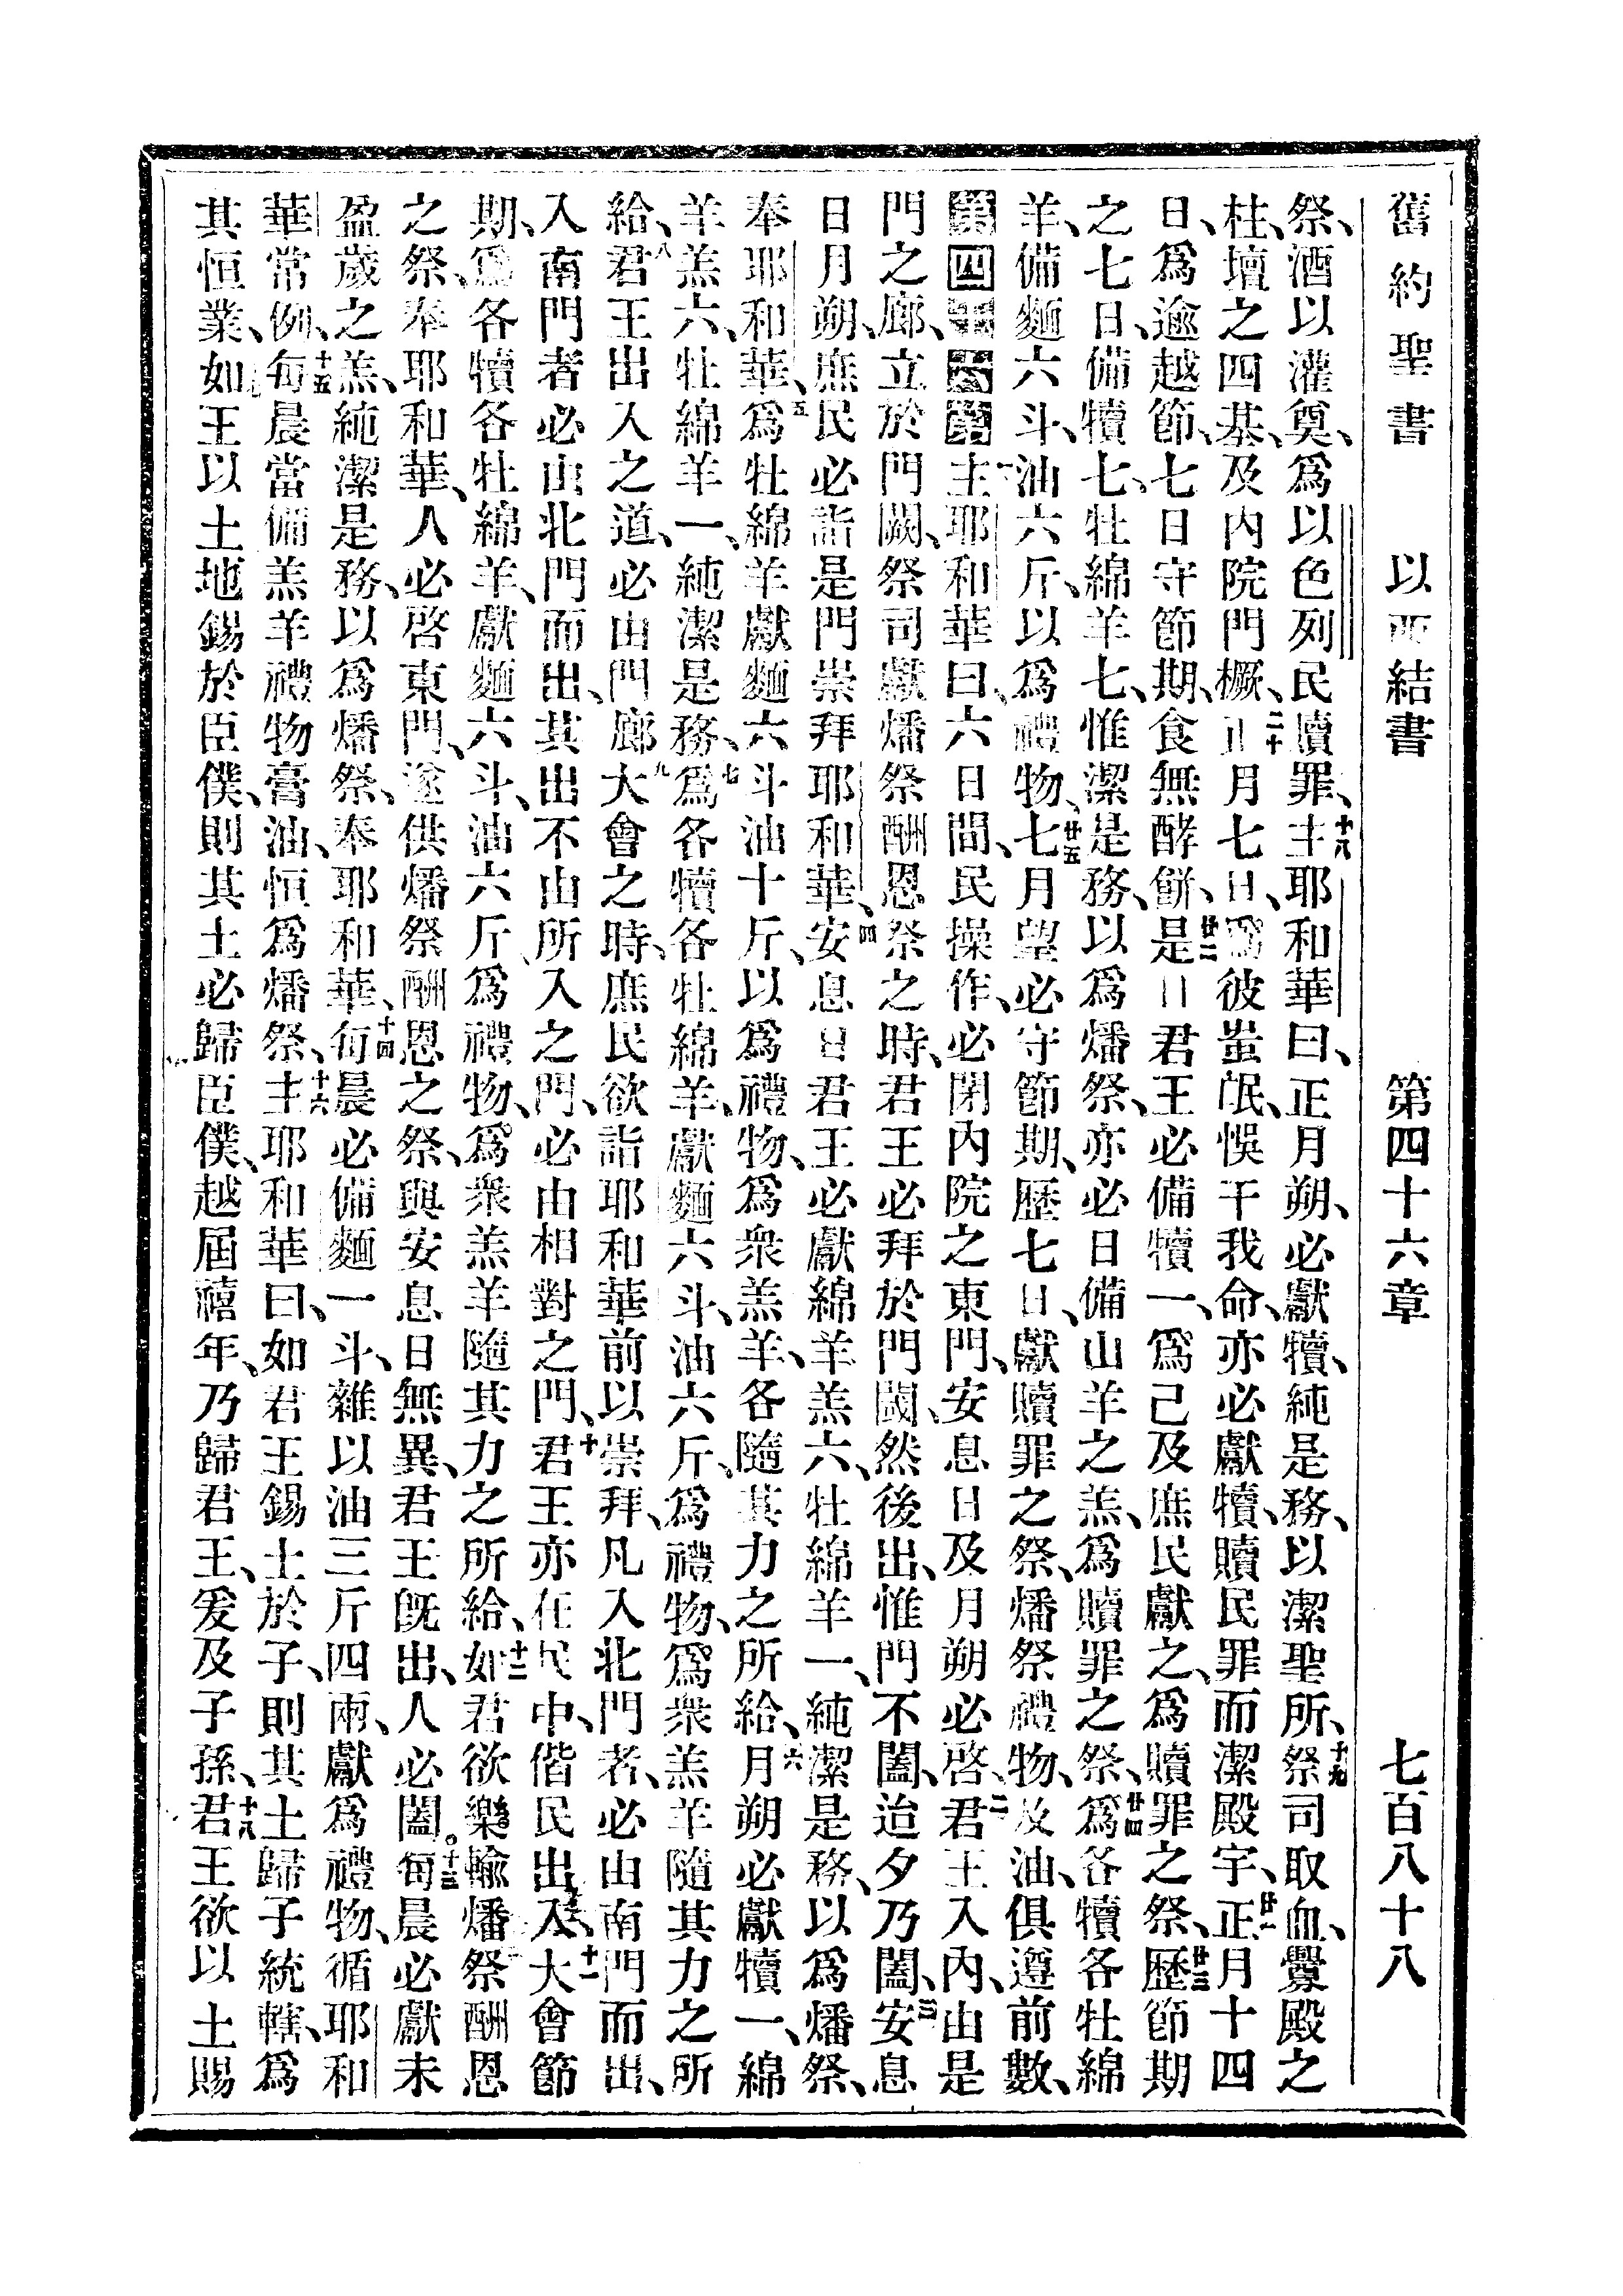 舊約聖書 以西結書 第四十六章 七百八十八
祭、酒以灌奠、爲以色列民贖罪、十八主耶和華曰、正月朔、必獻犢、純是務、以潔聖所、十九祭司取血、釁殿之
柱、壇之四基、及內院門橛、二十正月七日、爲彼蚩氓、悞干我命、亦必獻犢、贖民罪而潔殿宇、廿一正月十四
日、爲逾越節、七日守節期、食無酵餅、廿二是日君王必備犢一、爲己及庶民獻之、爲贖罪之祭、廿三歷節期
之七日、備犢七、牡綿羊七、惟潔是務、以爲燔祭、亦必日備山羊之羔、爲贖罪之祭、廿四爲各犢各牡綿
羊、備麵六斗、油六斤、以爲禮物、廿五七月望必守節期、歷七日、獻贖罪之祭、燔祭禮物、及油、俱遵前數、
第四十六章 一主耶和華曰、六日間、民操作、必閉內院之東門、安息日及月朔必啓、二君王入內、由是
門之廊、立於門闕、祭司獻燔祭酬恩祭之時、君王必拜於門閾、然後出、惟門不闔、迨夕乃闔、三安息
日月朔、庶民必詣是門崇拜耶和華、四安息日君王必獻綿羊羔六、牡綿羊一、純潔是務、以爲燔祭、
奉耶和華、五爲牡綿羊獻麵六斗油十斤、以爲禮物、爲衆羔羊、各隨其力之所給、六月朔必獻犢一、綿
羊羔六、牡綿羊一、純潔是務、七爲各犢各牡綿羊、獻麵六斗、油六斤、爲禮物、爲衆羔羊隨其力之所
給、八君王出入之道、必由門廊、九大會之時、庶民欲詣耶和華前以崇拜、凡入北門者、必由南門而出、
入南門者必由北門而出、其出不由所入之門、必由相對之門、十君王亦在民中、偕民出入、十一大會節
期、爲各犢各牡綿羊、獻麵六斗、油六斤、爲禮物、爲衆羔羊隨其力之所給、十二如君欲樂輸燔祭酬恩
之祭、奉耶和華、人必啓東門、遂供燔祭酬恩之祭、與安息日無異、君王旣出、人必闔。十三每晨必獻未
盈歲之羔、純潔是務、以爲燔祭、奉耶和華、十四每晨必備麵一斗、雜以油三斤四兩、獻爲禮物、循耶和
華常例、十五每晨當備羔羊禮物膏油、恒爲燔祭、十六主耶和華曰、如君王錫土於子、則其土歸子統轄、爲
其恒業、如王以土地錫於臣僕、則其土必歸臣僕、越屆禧年、乃歸君王、爰及子孫、十八君王欲以土賜